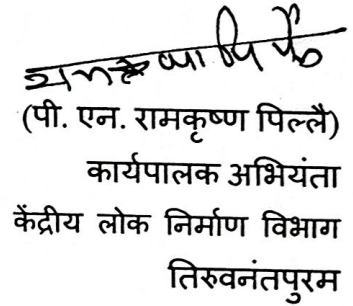 (पी. एन. रामकृष्ण पिल्लै)
कार्यपालक अभियंता
केंद्रीय लोक निर्माण विभाग
तिरुवनंतपुरम